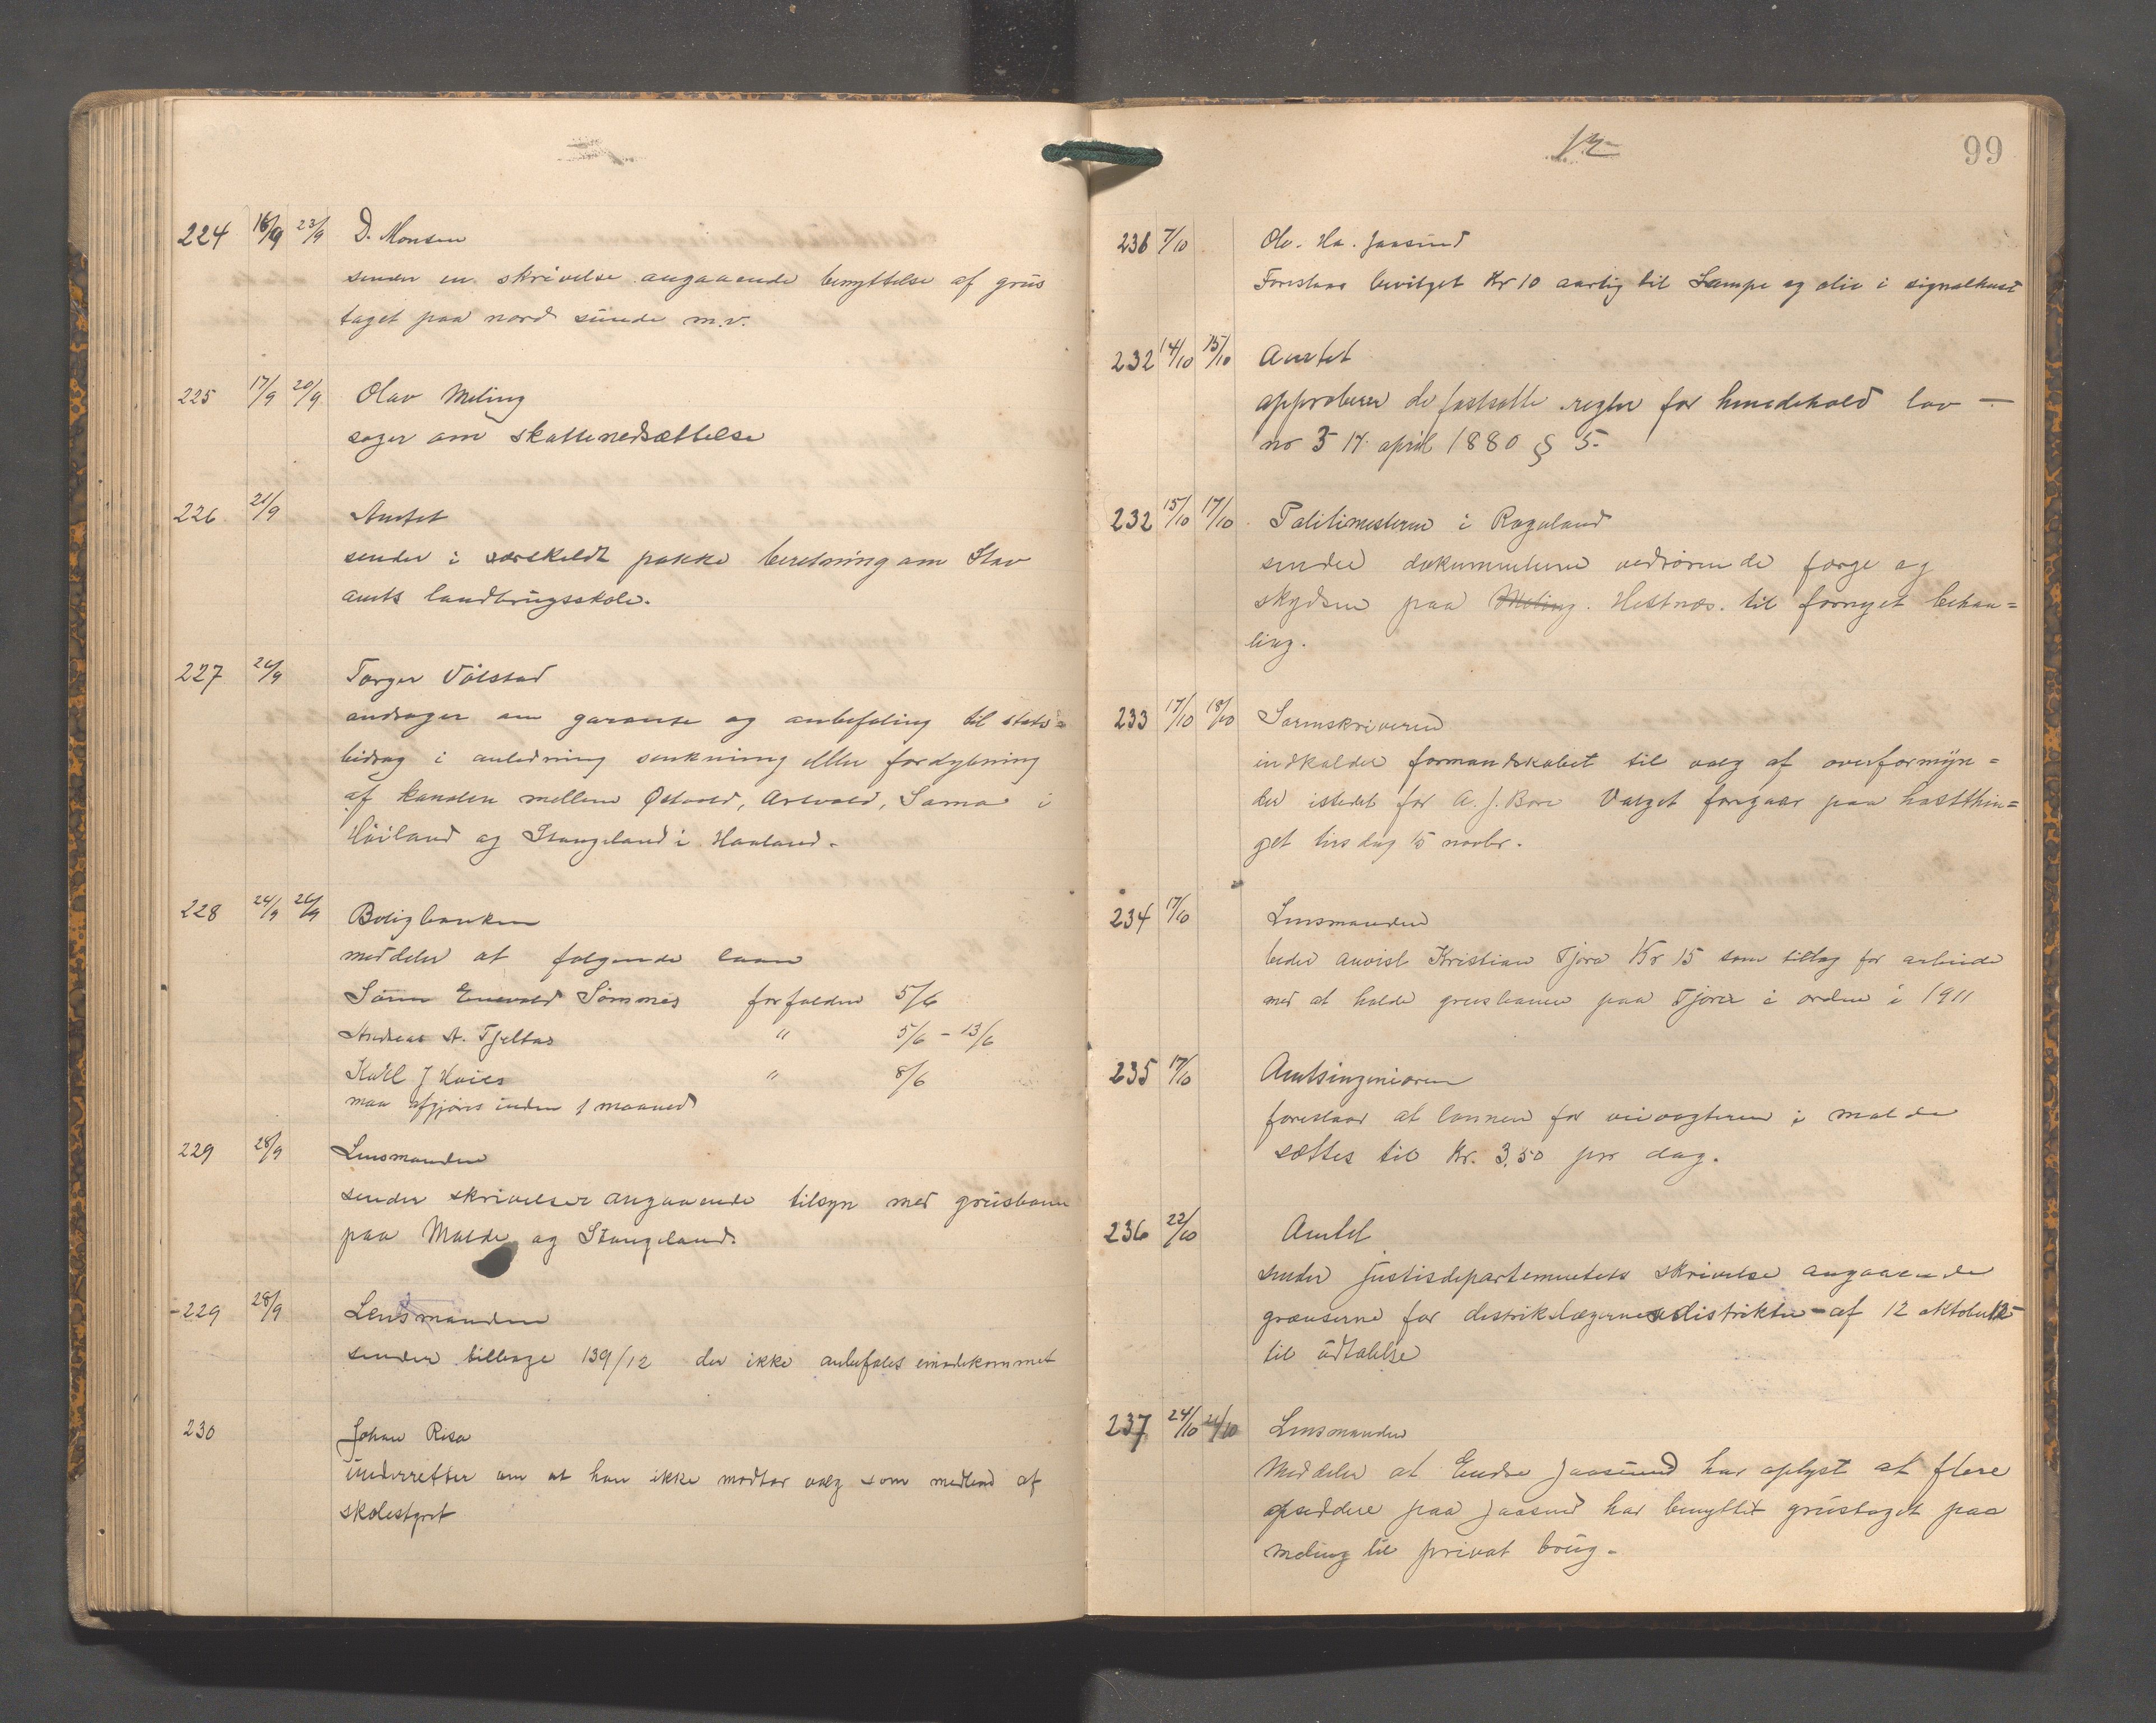 224 16/9 23/9 D. Monsen
sender en skrivelse angaaende benyttelse af grus
taget paa nord sunde m.v.
225 17/9 20/9 Olav Meling
søger om skattenedsættelse
226 21/9 Amtet
sender i særskildt pakke beretning om Stav
amts landbrugsskole.
227 26/9 Torger Volstad
andrager om garanti og anbefaling til stats=
bidrag i anledning senkning eller fordybning
af kanalen mellem Østvold, Artvold, Sama i
Høiland og Stangeland i Haaland.
228 24/9 26/9 Boligbanken
meddeler at følgende laan
Sømme forfalden 5/6
Andreas A. Tjeltas " 5/6 - 13/6
Karl J Haies " 8/6
maa afgjøres inden 1 maaned
229 28/9 Lensmanden
sender skrivelser angaaende tilsyn med grusbane
paa Malde og Stangeland.
-229 28/9 Lensmanden
sender tilbage 139/12 der ikke anbefales imødekommet
230 Johan Risa
underretter om at han ikke modtar valg som medlem af
skolestyret
12 99
236 7/10 Ole. Ha. Jaasund
Foreslaar bevilget Kr 10 aarlig til Lampe og olie i signalhuset
232 14/10 15/10 Amtet
approberer de fastsatte regler for hundehold lov —
no 3 17 april 1880 § 5.
232 15/10 17/10 Politimesteren i Rogaland
sender dokumenterne vedrørende færge og
skydsen paa Meling. Hestnæs. til fornyet behan=
ling.
233 17/10 18/10 Sorenskriveren
indkalder formandskabet til valg af overformyn=
der istedet for A. J. Bore Valget foregaar paa høstthin=
get tirsdag 15 novbr.
234 17/10 Lensmanden
beder anvist Kristian Tjora Kr 15 som tillæg for arbeide
med at holde grusbanen paa Tjora i orden i 1911
235 17/10 Amtsingeniøren
foreslaar at lønnen for veivogteren i malde
sættes til Kr. 3,50 pr dag.
236 22/10 Amtet
sender justisdepartementets skrivelse angaaende
grænserne for distriktslægernes distrikter - af 12 oktober 12 -
til udtalelse
237 24/10 24/10 Lensmanden
Meddeler at Endre Jaasund har oplyst at flere
opsiddere paa Jaasund har benyttet grustaget paa
meling til privat brug.